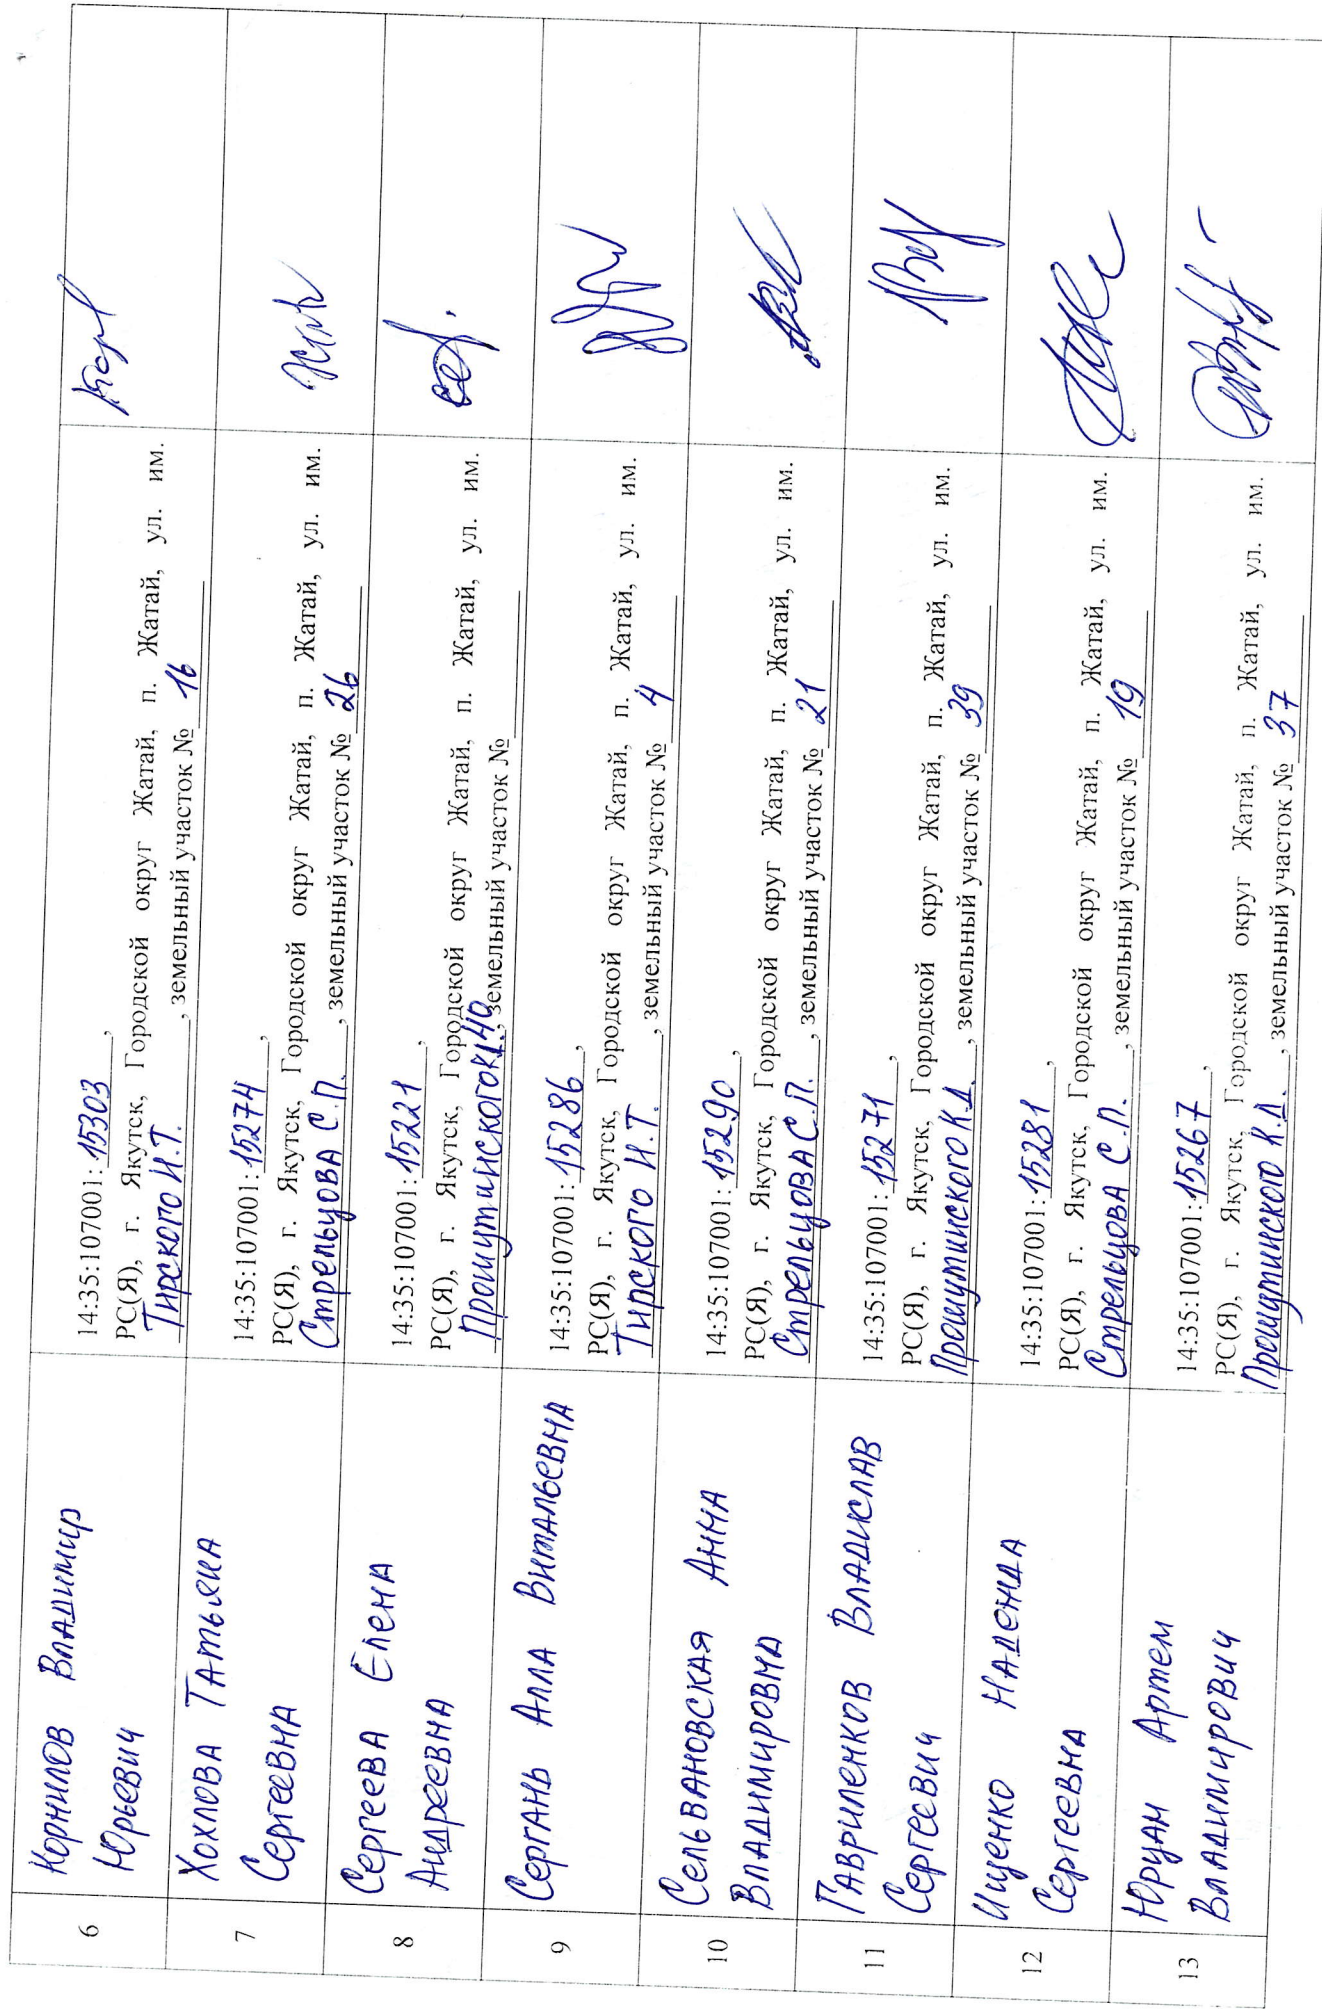 6
Корнилов Владимир
Юрьевич
14:35:107001: 15303,
РС(Я), г. Якутск, Городской округ Жатай, п. Жатай, ул. им.
Тирского И.Т., земельный участок № 16
7
Хохлова Татьяна
Сергеевна
14:35:107001: 15274,
РС(Я), г. Якутск, Городской округ Жатай, п. Жатай, ул. им.
Стрельцова С.П., земельный участок № 26
8
Сергеева Елена
Андреевна
14:35:107001: 15221,
РС(Я), г. Якутск, Городской округ Жатай, п. Жатай, ул. им.
Прошутинского, земельный участок №
9
Сергань Алла Витальевна
14:35:107001: 15286,
РС(Я), г. Якутск, Городской округ Жатай, п. Жатай, ул. им.
Тирского И.Т., земельный участок № 4
10
Сельвановская Анна
Владимировна
14:35:107001: 15290,
РС(Я), г. Якутск, Городской округ Жатай, п. Жатай, ул. им.
Стрельцова С.П., земельный участок № 21
11
Гавриленков Владислав
Сергеевич
14:35:107001: 15271,
РС(Я), г. Якутск, Городской округ Жатай, п. Жатай, ул. им.
Прошутинского К.Д., земельный участок № 39
12
Ищенко Надежда
Сергеевна
14:35:107001: 15281,
РС(Я), г. Якутск, Городской округ Жатай, п. Жатай, ул. им.
Стрельцова С.П., земельный участок № 19
13
Юрчан Артем
Владимирович
14:35:107001: 15267,
РС(Я), г. Якутск, Городской округ Жатай, п. Жатай, ул. им.
Прошутинского К.Д., земельный участок № 37